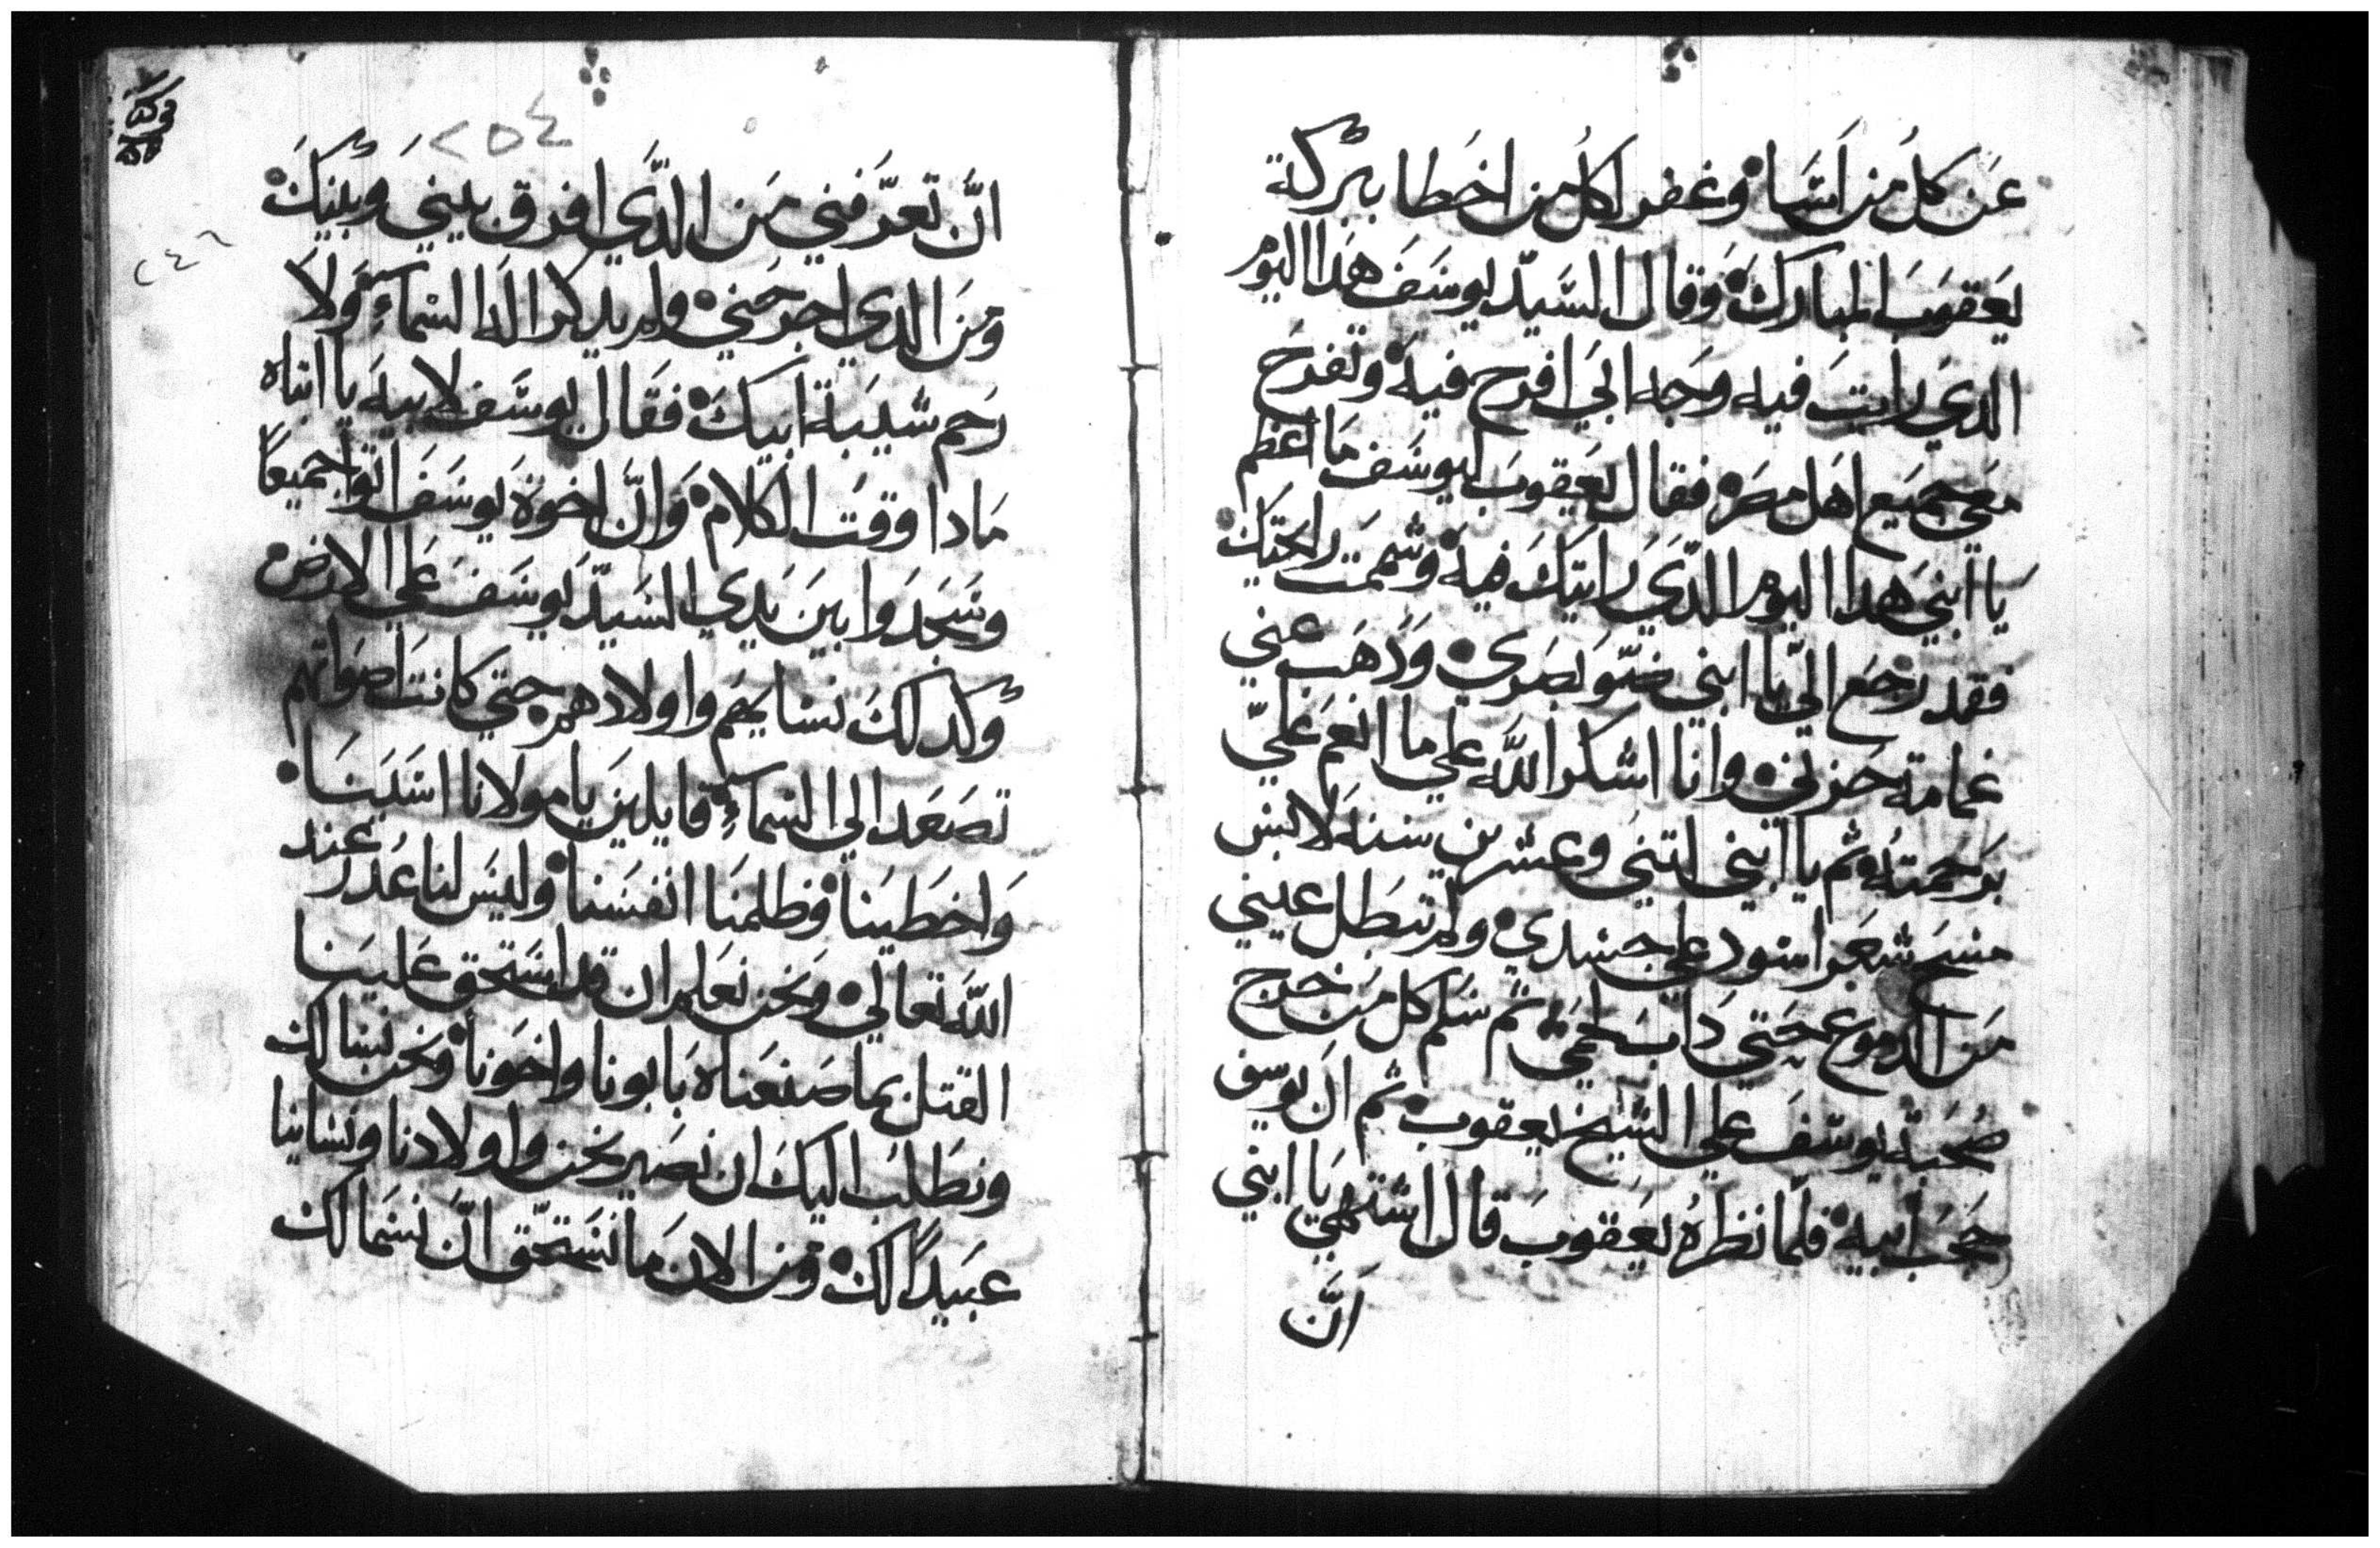 عَن كلُ من اَسَّا وغفر لكلُ من اخَطا ببرَكة
يَعَقوبَ المبارَكَ وَقال السَيّد يوسَفَ هَدا اليَوم
الدَي رايتَ فيه وَجه ابَي افرح فيه وتفرَح
معَي جميَع اهَل مصرَ فقال يَعَقوبَ ليوسَفَ مَا اعَظم
يَا ابني هَدا اليوم الدَّي رَايتَكَ فيه وشممَتَ رايحَتِكَ
فقد رجَع اليّ يا ابني ضَوّ بَصَرَي وَدهَبَ عني
غمامة حَزني وانا اشكر اللَّه علي ما انعَم عَليّ
برَحمتهُ ثم يا ابني اتني وعشرين سنه لابس
مسَح شعَر اسود علي جسَدي ولم تبَطل عيني
مَن الدموع حَتي دَاب لحمَي ثم سَلم كل مَن خرج
صُحَبة يوسَفَ علي الشيخ يعقوب ثم ان يوسف
جَنَبَ ابيه فلمَّا نظرهُ يَعَقوبَ قال اشتهَي يَا ابني
اَنَّ
٢٥٤
٢٤٦
انَّ تعرَّفني مَن الدَّي افرق بيني وبَينَكَ
ومَن الدي اجرحَني ولم يدكر الَه السَمآءِ وَلا
رَحم شيبَة ابَيكَ فقَال يوسَف لابيه يَا ابتاه
مَادا وقتَ الكلام وَانَّ اخوَة يوسَفَ اتوا جميعاً
وسَجَدوا بينَ يدي السَيدّ يوسَفَ علي الارض
وكدلكَ نسَايهَم واولادهم حتي كانتَ اصَواتهم
تصَعَد الي السَمآءِ قايلينَ يا مولانا اسَيَنا
وَاخطَينا وظلمنَا انفسَنا وليَس لنا عُدر عند
اللَّه تعَالي ونحَن نعَلم ان قد استَحق عَليَنا
القتل بما صَنعَناه بَابونا واخَونا ونحَن نسَالك
ونطَلبُ اليكَ ان نصَير نحَن واولادنا ونسَاينا
عبَيداً لك ومن الان مَا نسَتحَق انَّ نسَمَا لك